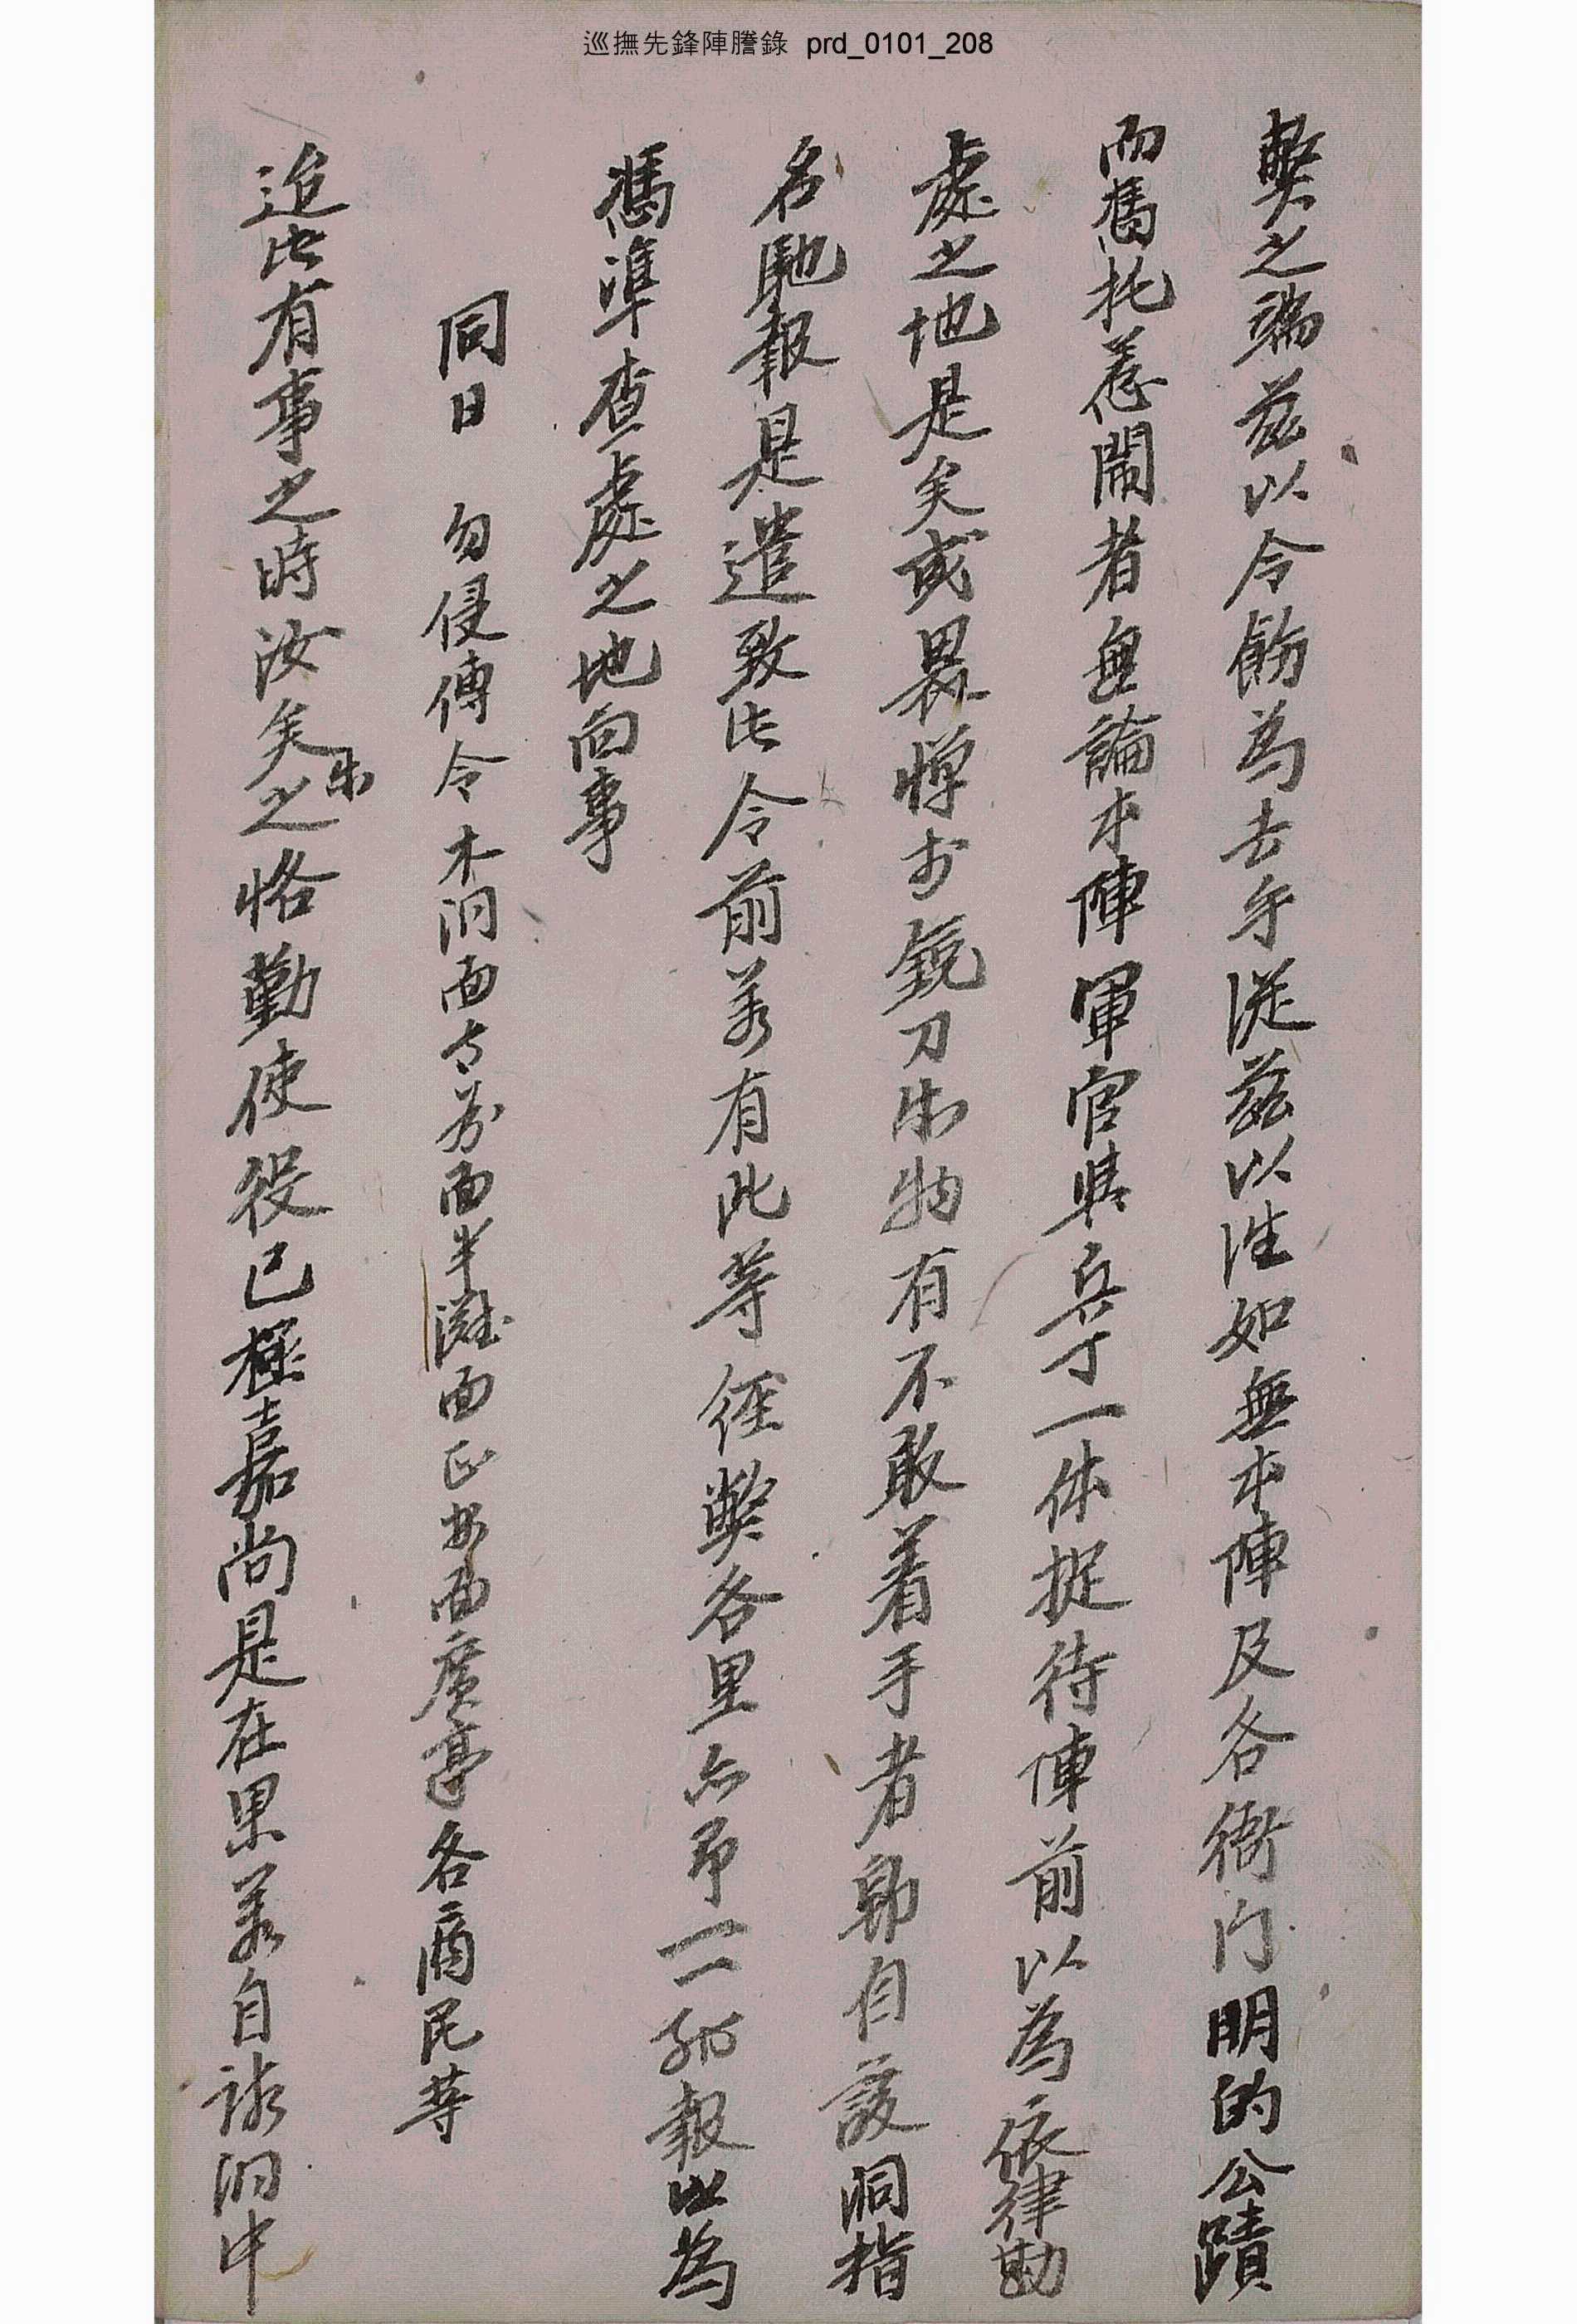 巡撫先鋒陣謄錄 prd_0101_208
弊之端茲以令飭爲去乎從茲以往如無本陣及各衙门明的公蹟
而憑托惹鬧者無論本陣軍官與兵丁一体捉待陣前以爲依律勘
處之地是矣或畏憚於銃刀等物有不敢着手者卽自該洞指
名馳報是遣致此令前若有此等經弊各里亦卽一一報以爲
憑準查處之地向事
同日 勿侵傳令木洞面古 面半灘面正安面廣亭各商民等
近此有事之時汝矣等之恪勤使役已極嘉尚是在果若自該洞中